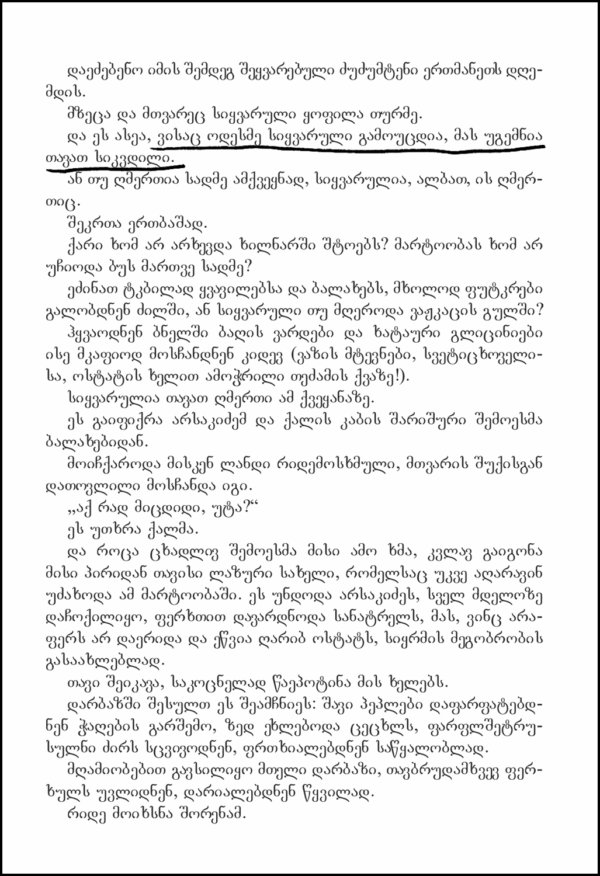 დაეძებენო იმის შემდეგ შეყვარებული ძუძუმტენი ერთმანეთს დღე-
მდის.
მზეცა და მთვარეც სიყვარული ყოფილა თურმე.
და ეს ასეა, ვისაც ოდესმე სიყვარული გამოუცდია, მას უგემნია
თავათ სიკვდილი.
ან თუ ღმერთია სადმე ამქვეყნად, სიყვარულია, ალბათ, ის ღმერ-
თიც.
შეკრთა ერთბაშად.
ქარი ხომ არ არხევდა ხილნარში შტოებს? მარტოობას ხომ არ
უჩიოდა ბუს მართვე სადმე?
ეძინათ ტკბილად ყვავილებსა და ბალახებს, მხოლოდ ფუტკრები
გალობდნენ ძილში, ან სიყვარული თუ მღეროდა ვაჟკაცის გულში?
ჰყვაოდნენ ბნელში ბაღის ვარდები და ხატაური გლიცინიები
ისე მკაფიოდ მოსჩანდნენ კიდევ (ვაზის მტევნები, სვეტიცხოველი-
სა, ოსტატის ხელით ამოჭრილი თეძამის ქვაზე!).
სიყვარულია თავათ ღმერთი ამ ქვეყანაზე.
ეს გაიფიქრა არსაკიძემ და ქალის კაბის შარიშური შემოესმა
ბალახებიდან.
მოიჩქაროდა მისკენ ლანდი რიდემოსხმული, მთვარის შუქისგან
დათოვლილი მოსჩანდა იგი.
„აქ რად მიცდიდი, უტა?“
ეს უთხრა ქალმა.
და როცა ცხადლივ შემოესმა მისი ამო ხმა, კვლავ გაიგონა
მისი პირიდან თავისი ლაზური სახელი, რომელსაც უკვე აღარავინ
უძახოდა ამ მარტოობაში. ეს უნდოდა არსაკიძეს, სველ მდელოზე
დაჩოქილიყო, ფერხთით დავარდნოდა სანატრელს, მას, ვინც არა-
ფერს არ დაერიდა და ეწვია ღარიბ ოსტატს, სიყრმის მეგობრობის
გასაახლებლად.
თავი შეიკავა, საკოცნელად წაეპოტინა მის ხელებს.
დარბაზში შესულთ ეს შეამჩნიეს: შავი პეპლები დაფარფატებდ-
ნენ ჭაღების გარშემო, ზედ ეხლებოდა ცეცხლს, ფარფლშეტრუ-
სულნი ძირს სცვივოდნენ, ფრთხიალებდნენ საწყალობლად.
მღამიობებით გავსილიყო მთელი დარბაზი, თავბრუდამხვევ ფერ-
ხულს უვლიდნენ, დარიალებდნენ წყვილად.
რიდე მოიხსნა შორენამ.